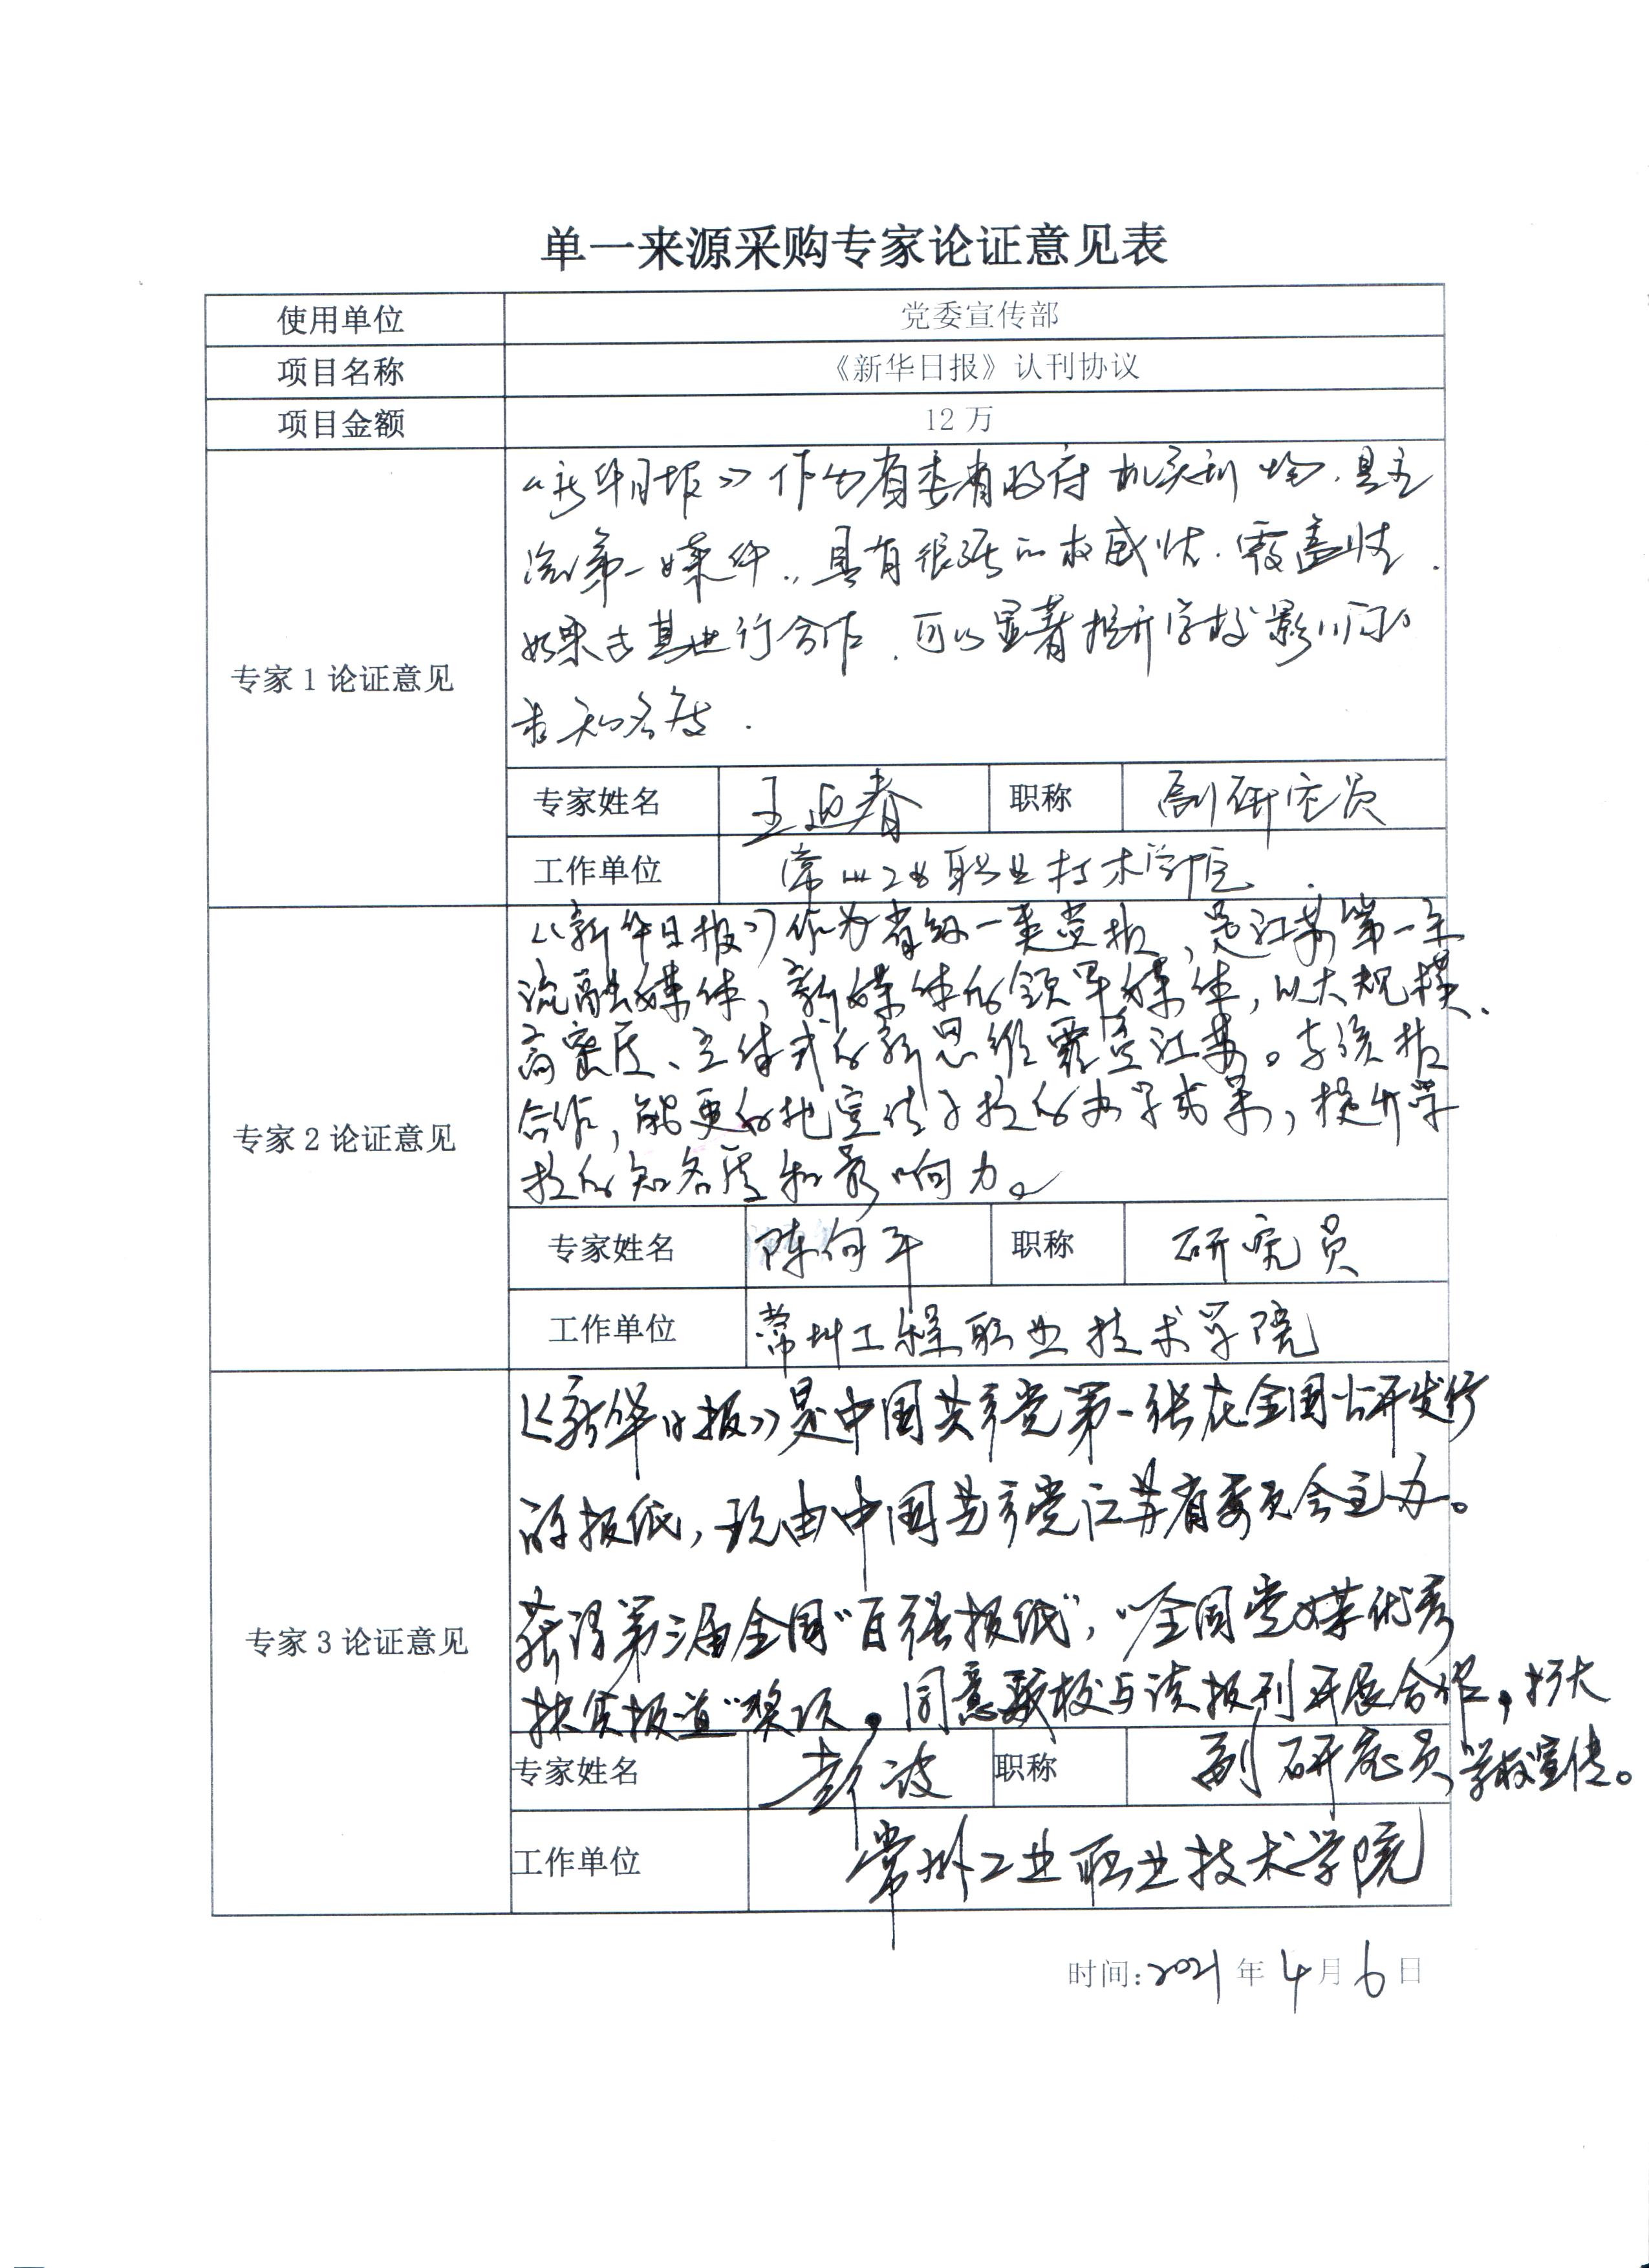 单一来源采购专家论证意见表
使用单位 党委宣传部
项目名称 《新华日报》认刊协议
项目金额 12 万
专家 1 论证意见
《新华日报》作为省委省政府机关刊物,是主
流第一媒体,具有很强的权威性、覆盖性.
如果去其进行合作,可以显著提升学校影响力
和知名度.
专家姓名 王迎春 职称 副研究员
工作单位 常州工业职业技术学院
专家 2 论证意见
《新华日报》作为省级一类党报,是江苏第一主
流融媒体,新媒体的领军媒体,以大规模、
高密度、立体式的新思维覆盖江苏。与该报
合作,能更好地宣传学校的办学成果,提升学
校的知名度和影响力。
专家姓名 陈何平 职称 研究员
工作单位 常州工程职业技术学院
专家 3 论证意见
《新华日报》是中国共产党第一张在全国公开发行
的报纸,现由中国共产党江苏省委员会主办。
获得第三届全国“百强报纸”,“全国党媒优秀
扶贫报道”奖项。同意我校与该报刊开展合作,扩大
学校宣传。
专家姓名 彭波 职称 副研究员
工作单位 常州工业职业技术学院
时间:2021 年 4 月 6 日